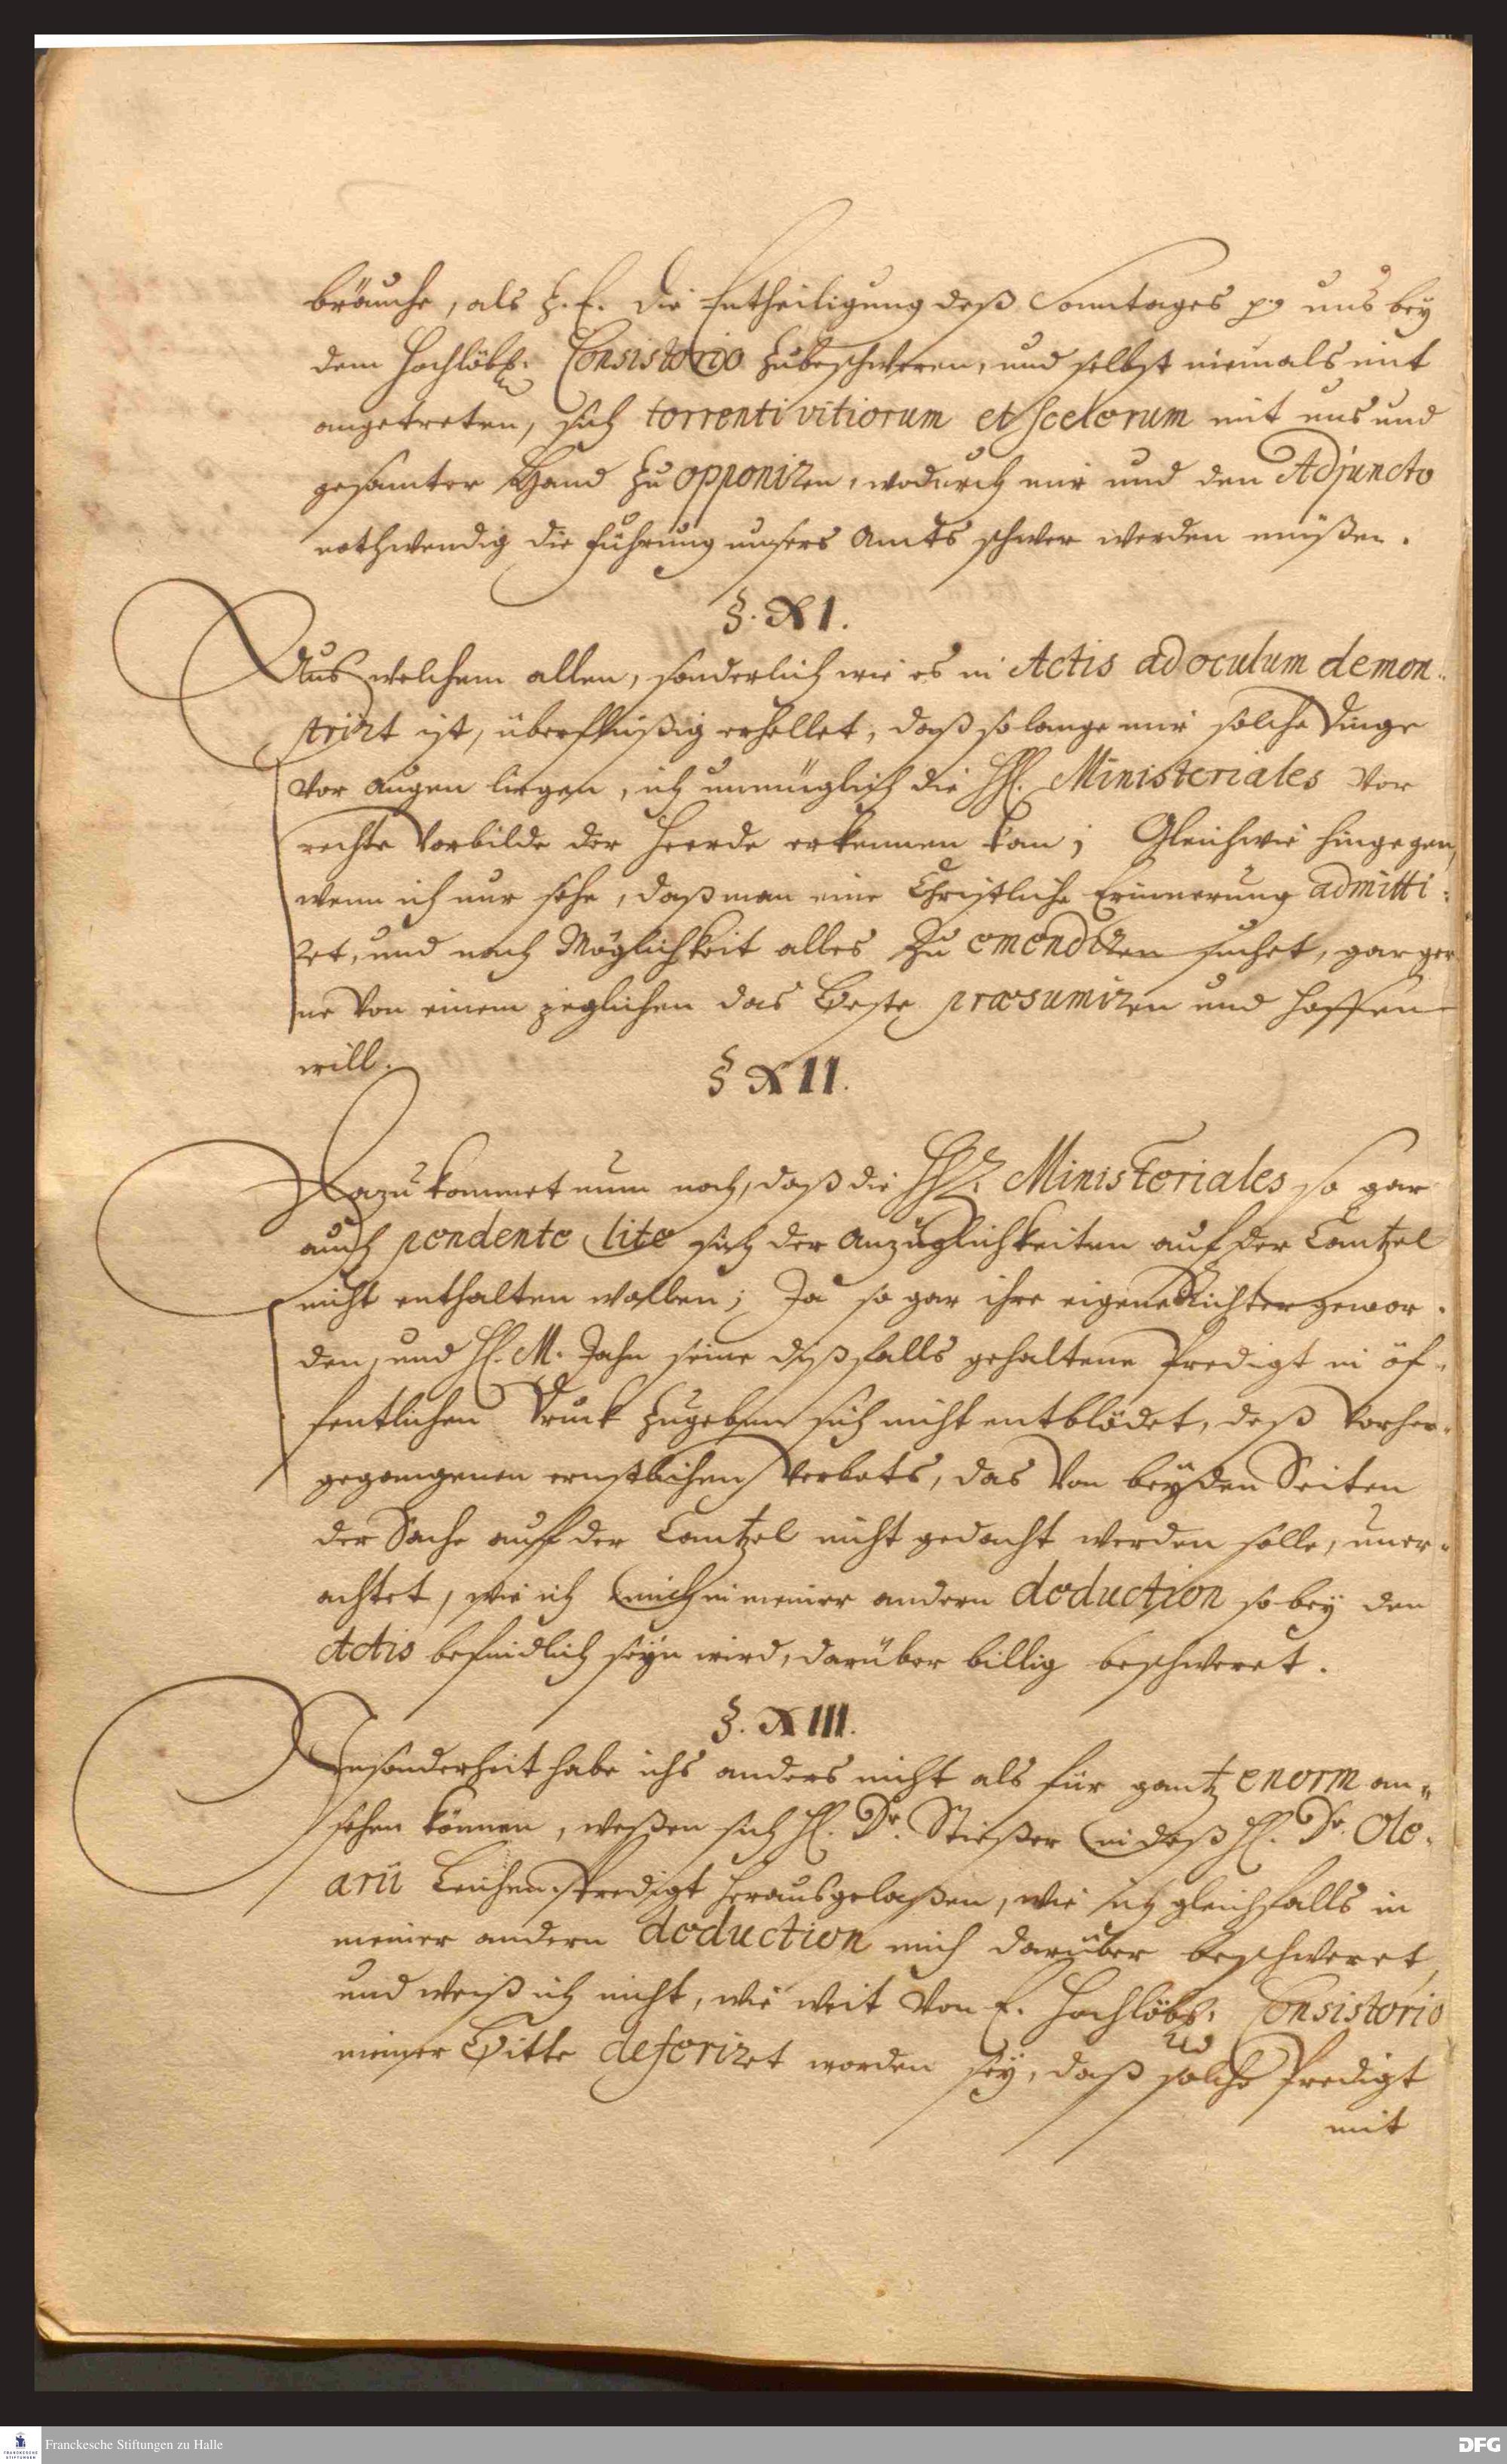 bräuche, als z. E. die Entheiligung deß Sonntages p. uns bey
dem Hochlöbl. Consistorio zubeschweren, und selbst niemals mit
angetreten, sich torrenti vitiorum et scelerum mit uns und
gesamter Hand zu opponiren, wodurch mir und den Adjuncto
nothwendig die Führung unsers Amts schwer werden müßen.
§. XI.
Aus welchem allen, sonderlich wie es in Actis ad oculum demon-
strirt ist, überflüßig erhellet, daß so lange mir solche Dinge
vor Augen liegen, ich unmüglich die HH. Ministeriales vor
rechte Vorbilde der Heerde erkennen kan; Gleichwie hingegen,
wenn ich nur sehe, daß man eine Christliche Erinnerung admitti-
ret, und nach Möglichkeit alles zu emendiren suchet, gar ger
ne von einem jeglichen das Beste præsumiren und hoffen
will.
§ XII.
Dazu kommet nun noch, daß die HH. Ministeriales so gar
auch pendente lite sich der Anzüglichkeiten auf der Cantzel
nicht enthalten wollen; Ja so gar ihre eigene Richter gewor-
den, und H. M. Jahn seine deßfalls gehaltene Predigt in öf-
fentlichen Druck zugeben sich nicht entblödet, deß vorher-
gegangenen ernstlichen Verbots, das von beyden Seiten
der Sache auf der Cantzel nicht gedacht werden solle, uner-
achtet, wie ich mich in meiner andern deduction so bey den
Actis befindlich seyn wird, darüber billig beschweret.
§. XIII.
Insonderheit habe ichs anders nicht als für gantz enorm an-
sehen können, weßen sich H. Dr. Stießer in deß H. Dr. Ole-
arii Leichen-Predigt herausgelaßen, wie ich gleichfalls in
meiner andern deduction mich darüber beschweret,
und weiß ich nicht, wie weit von E. Hochlöbl. Consistorio
meiner Bitte deferiret worden sey, daß solche Predigt
mit
Franckesche Stiftungen zu Halle
FRANCKESCHE STIFTUNGEN
DFG